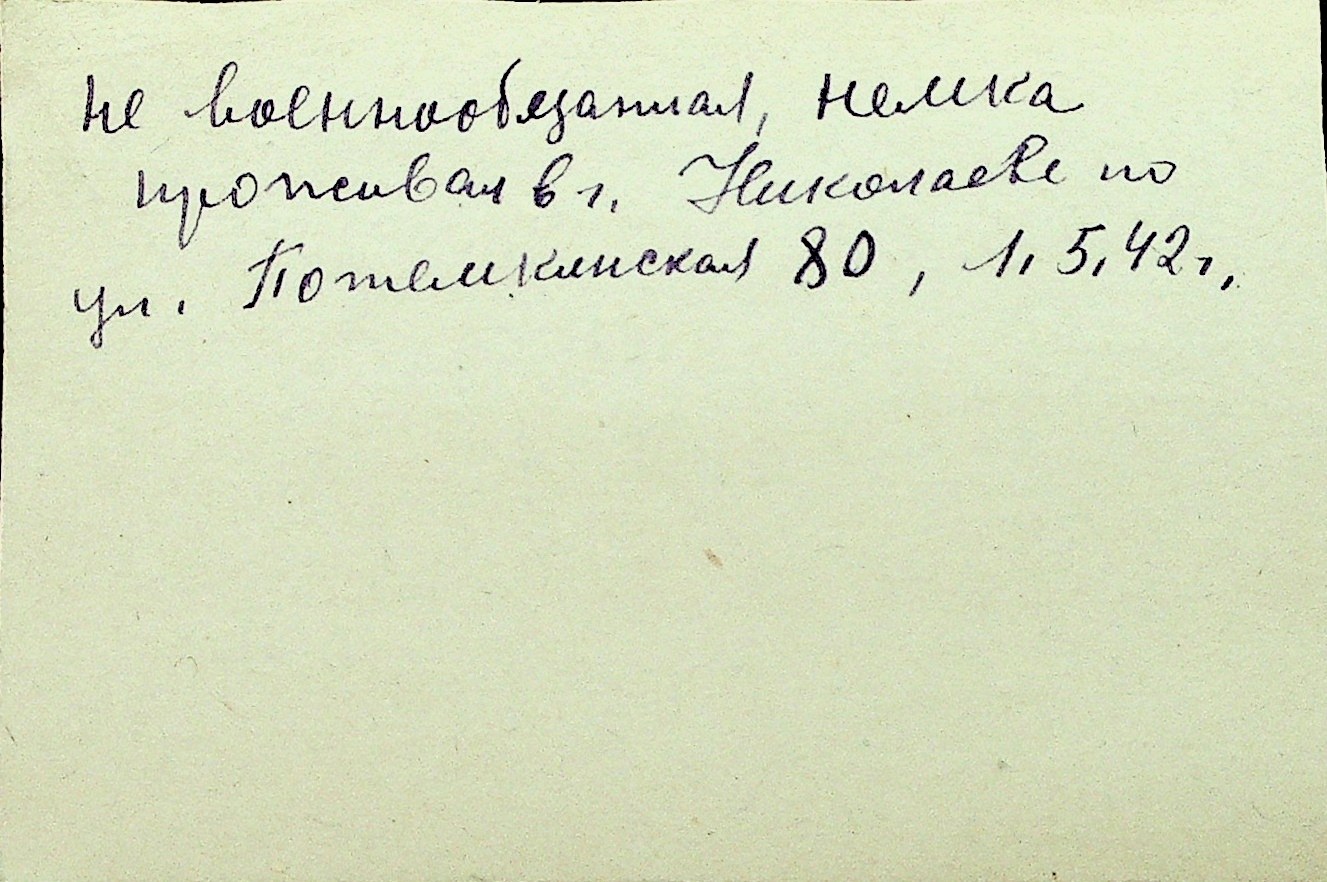 не военнообязаная, немка
проживал в г. Николаеве по
ул. Потемкинская 80, 1.5.42 г.